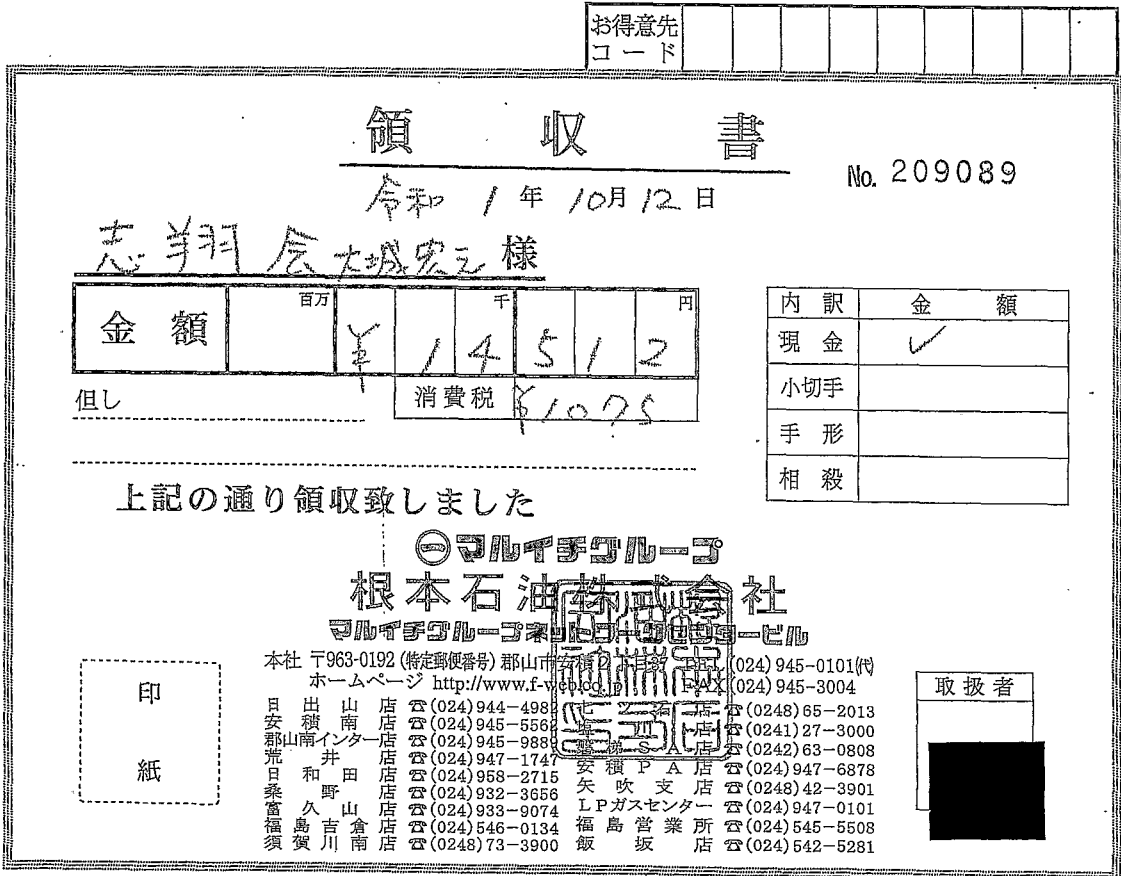 お得意先
コード
領収書
No. 209089
令和 1年 10月 12日
志翔会 大城宏之 様
金額 百万 千 円
¥14512
但し
消費税 ¥1075
内訳 金額
現金 ✓
小切手
手形
相殺
上記の通り領収致しました
㊀マルイチグループ
根本石油株式会社
マルイチグループネットワークセンタービル
本社 〒963-0192 (特定郵便番号) 郡山市安積2丁目37 TEL (024) 945-0101㈹
ホームページ http://www.f-web.co.jp FAX (024) 945-3004
日出山店 ☎(024)944-4982
安積南店 ☎(024)945-5562
郡山南インター店 ☎(024)945-9889
荒井店 ☎(024)947-1747
日和田店 ☎(024)958-2715
桑野店 ☎(024)932-3656
富久山店 ☎(024)933-9074
福島吉倉店 ☎(024)546-0134
須賀川南店 ☎(0248)73-3900
店 ☎(0248)65-2013
塩川店 ☎(0241)27-3000
磐梯SA店 ☎(0242)63-0808
安積PA店 ☎(024)947-6878
矢吹支店 ☎(0248)42-3901
LPガスセンター ☎(024)947-0101
福島営業所 ☎(024)545-5508
飯坂店 ☎(024)542-5281
印紙
取扱者